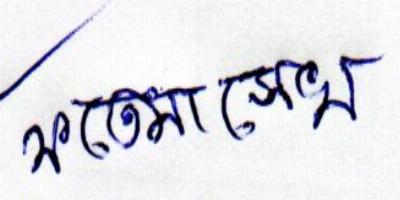 ফতেমা সেখ